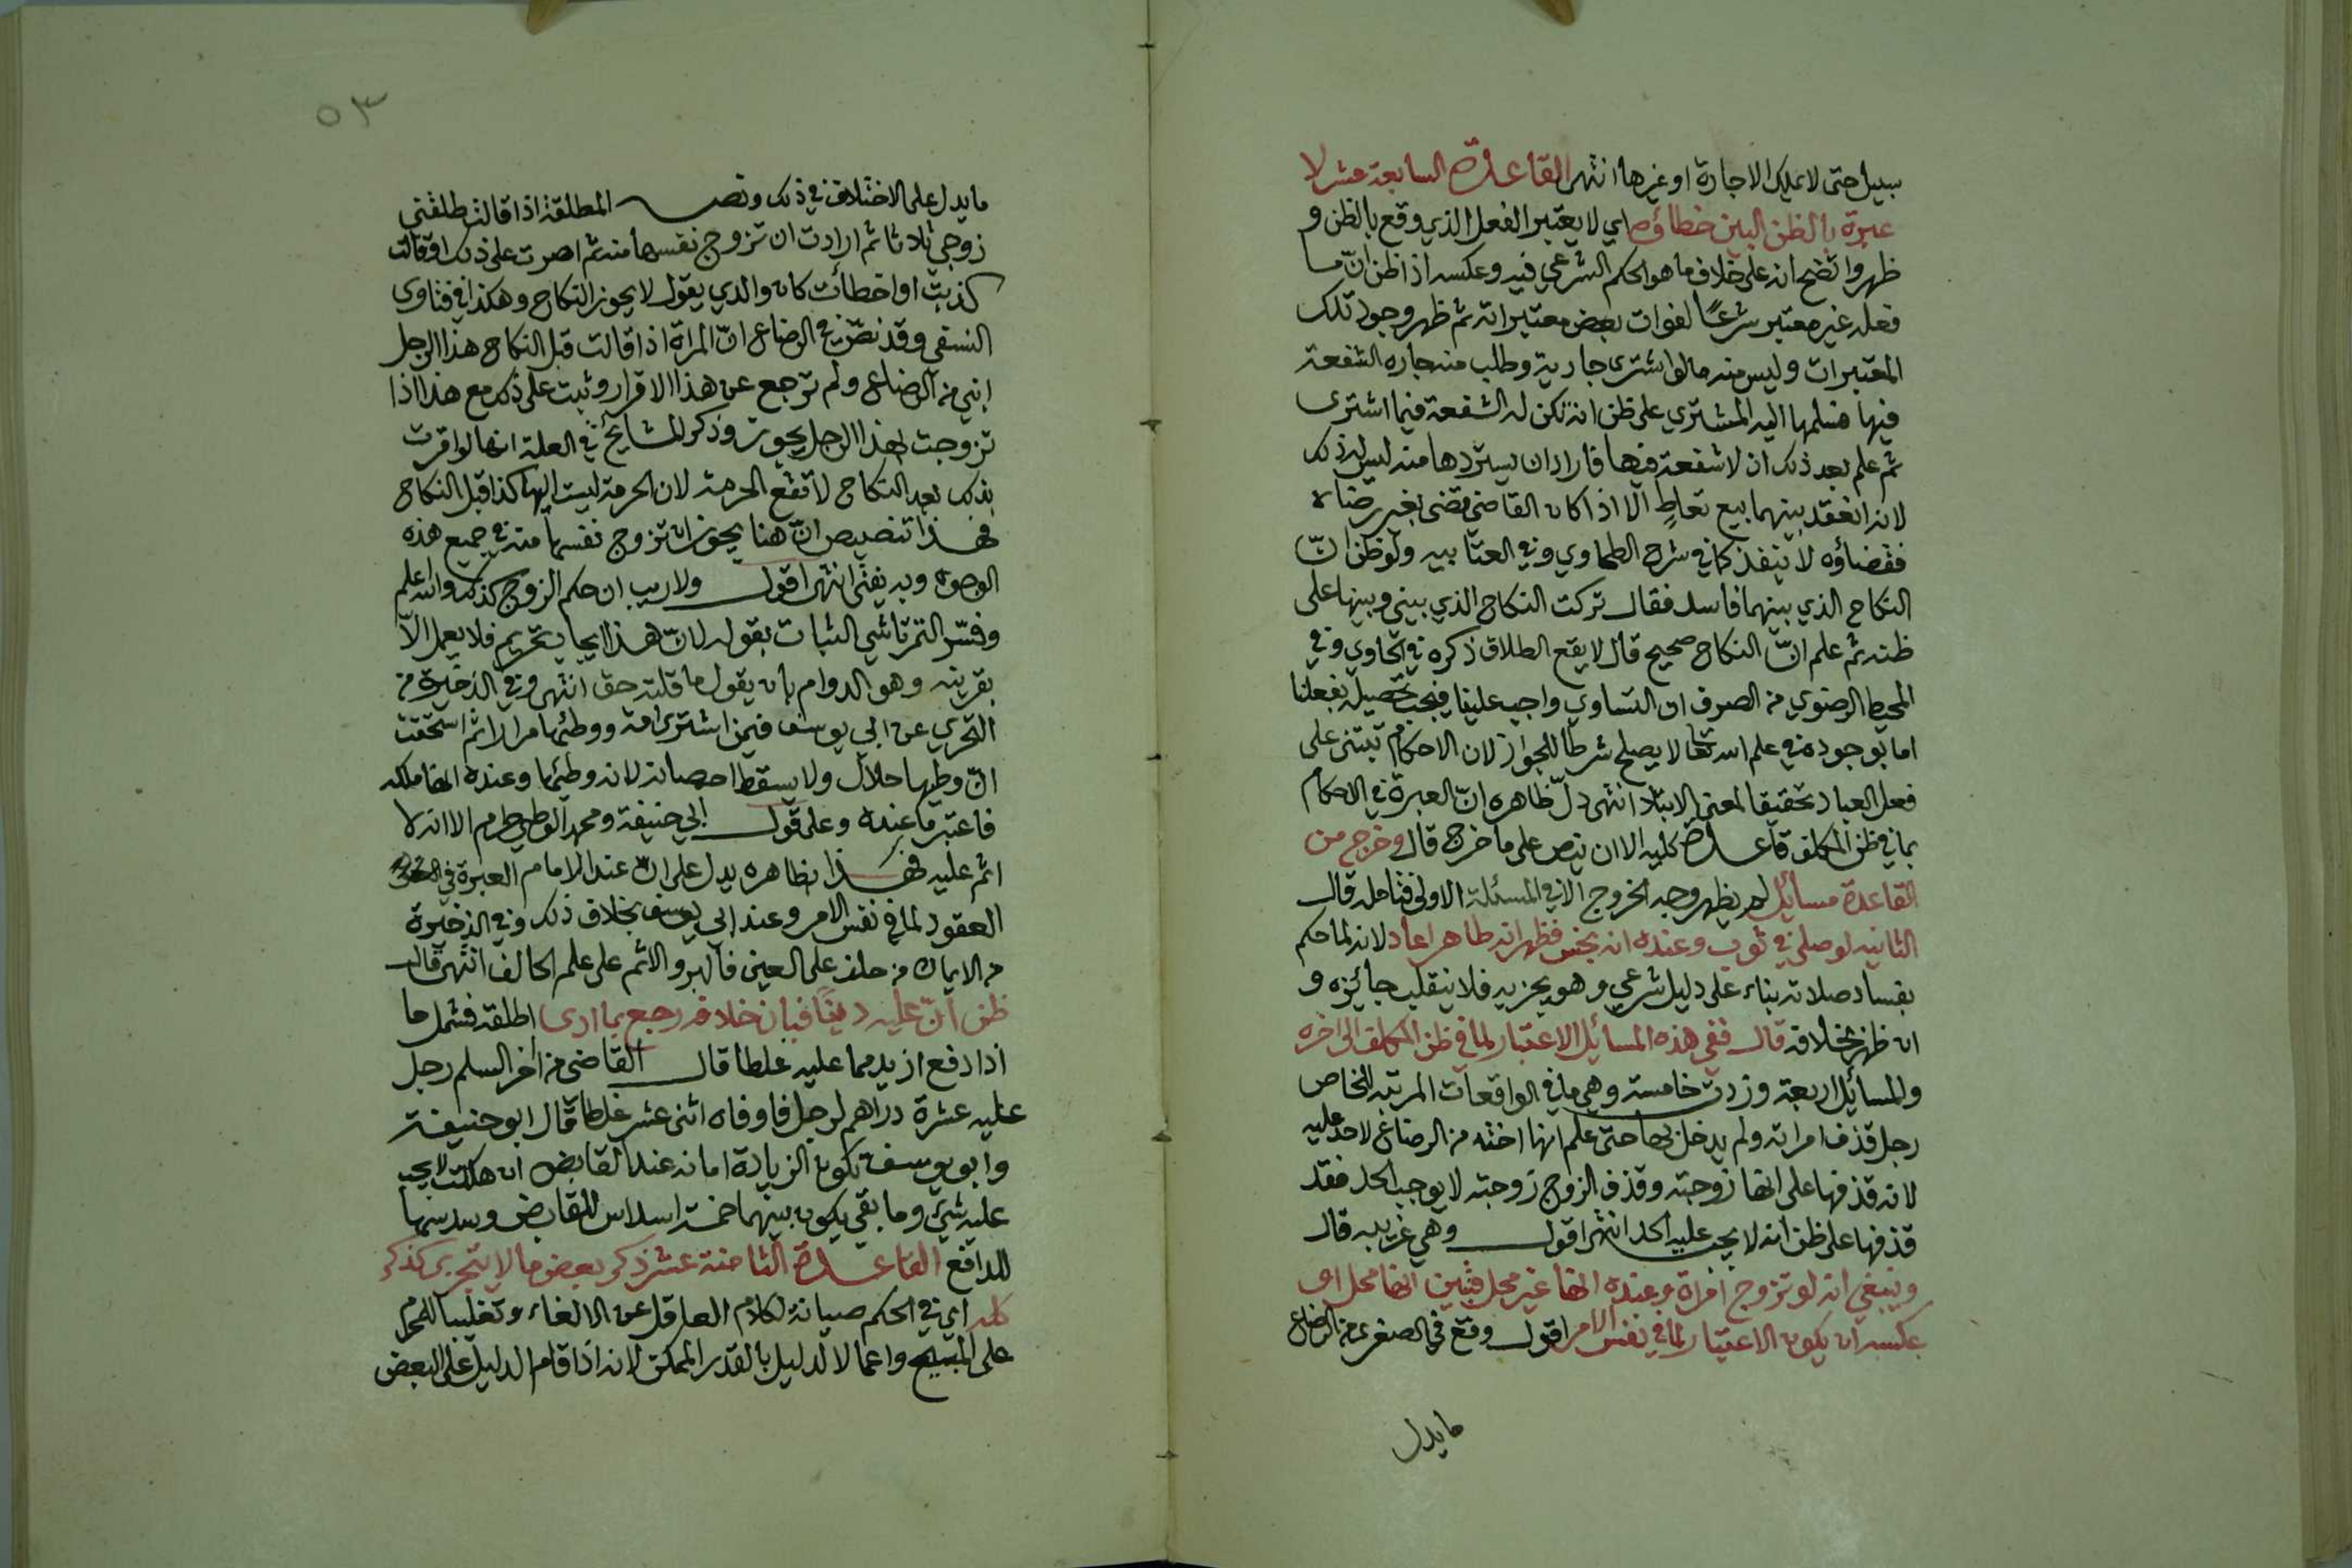 سبيل حتى لا يملك الاجارة او غيرها انتهى القاعدة السابعة عشر لا
عبرة بالظن البين خطاؤه اي لا يعتبر الفعل الذي وقع بالظن و
ظهر واتضح انه على خلاف ما هو الحكم الشرعي فيه وعكسه اذا ظن ان ما
فعله غير معتبر شرعًا لفوات بعض معتبراته ثم ظهر وجود تلك
المعتبرات وليس منه ما لو اشترى جارية وطلب منه جاره الشفعة
فيها فسلمها اليه المشتري على ظن انه تكن له الشفعة فيما اشترى
ثم علم بعد ذلك ان لا شفعة فيها فاراد ان يستردها منه ليس له ذلك
لانه انعقد بينهما بيع تعاطٍ الّا اذا كان القاضي قضى بغير رضاه
فقضاؤه لا ينفذ كما في شرح الطحاوي وفي العتابيه ولو ظن انّ
النكاح الذي بينهما فاسد فقال تركت النكاح الذي بيني وبينها على
ظنه ثم علم انّ النكاح صحيح قال لا يقع الطلاق ذكره في الحاوي وفي
المحيط الرضوي من الصرف ان التساوي واجب علينا فيجب تحصيله بفعلنا
اما بوجوده في علم الله تعا لا يصلح شرطا للجواز لان الاحكام تبتنى على
فعل العباد تحقيقا لمعنى الابتلاء انتهى دلّ ظاهره انّ العبرة في الاحكام
بما في ظن المكلف قاعدة كلية الا ان ينص على ما خرج قال وخرج من
القاعدة مسائل لم يظهر وجه الخروج الا في المسئلة الاولى فتامله قال
الثانيه لو صلى في ثوب وعنده انه نجس فظهر انه طاهر اعاد لانه لما حكم
بفساد صلاته بناء على دليل شرعي وهو يجزيه فلا ينقلب جائزه و
ان ظهر بخلافه قال ففي هذه المسائل الاعتبار لما في ظن المكلف الى اخره
والمسائل اربعة وزدت خامسة وهي ما في الواقعات المرتبه للخاص
رجل قذف امراته ولم يدخل بها حتى علم انها اخته من الرضاع لا حد عليه
لانه قذفها على انها زوجته وقذف الزوج زوجته لا يوجب الحد فقد
قذفها على ظن انه لا يجب عليه الحد انتهى اقول وهي غريبه قال
وينبغي انه لو تزوج امراة وعنده انها غير محل فتبين انها محل او
عكسه ان يكون الاعتبار لما في نفس الامر اقول وقع في الصغرى من الرضاع
ما يدل
٥٣
ما يدل على الاختلاف في ذلك ونصه المطلقة اذا قالت طلقني
زوجي ثلاثا ثم ارادت ان تزوج نفسها منه ثم اصرت على ذلك او قالت
كذبت او اخطأت كان والدي يقول لا يجوز النكاح وهكذا في فتاوى
النسفي وقد نصّ في الرضاع انّ المراة اذا قالت قبل النكاح هذا الرجل
ابني من الرضاع ولم ترجع عن هذا الاقرار وثبت على ذلك مع هذا اذا
تزوجت لهذا الرجل يجوز وذكر المشايخ في العلة انها لو اقرت
بذلك بعد النكاح لا تقع الحرمة لان الحرمة ليست اليها كذا قبل النكاح
فهذا تنصيص انّ هنا يجوز ان تزوج نفسها منه في جميع هذه
الوجوه وبه يفتى انتهى اقول ولا ريب ان حكم الزوج كذلك والله اعلم
وفسّر التمرتاشي الثبات بقوله لانّ هذا ايجاب تحريم فلا يعمل الّا
بقرينه وهو الدوام بان يقول ما قلته حق انتهى وفي الذخيرة من
التحري عن ابي يوسف فيمن اشترى امة ووطئها مرارا ثم استحقت
انّ وطيها حلال ولا يسقط احصانه لانه وطئها وعنده انها ملكه
فاعتبر ما عنده وعلى قول ابي حنيفة ومحمد الوطي حرام الا انه لا
اثم عليه فهذا بظاهره يدل على انّ عند الامام العبرة في
العقود لما في نفس الامر وعند ابي يوسف بخلاف ذلك وفي الذخيرة
من الايمان من حلف على العين فالبر والاثم على علم الحالف انتهى قال
ظن انّ عليه دينًا فبان خلافه رجع بما ادى اطلقه فشمل ما
اذا دفع ازيد مما عليه غلطا قال القاضي من اخر السلم رجل
عليه عشرة دراهم لرجل فاوفاه اثنى عشر غلطا قال ابو حنيفة
وابو يوسف تكون الزيادة امانه عند القابض ان هلكت لا يجب
عليه شئ وما بقي يكون بينهما خمسة اسداس للقابض وسدسها
للدافع القاعدة الثامنة عشر ذكر بعض ما لا يتجزى كذكر
كله اي في الحكم صيانة لكلام العاقل عن الالغاء وتغليبا للمحرم
على المبيح واعمالا لدليل بالقدر الممكن لانه اذا قام الدليل على البعض